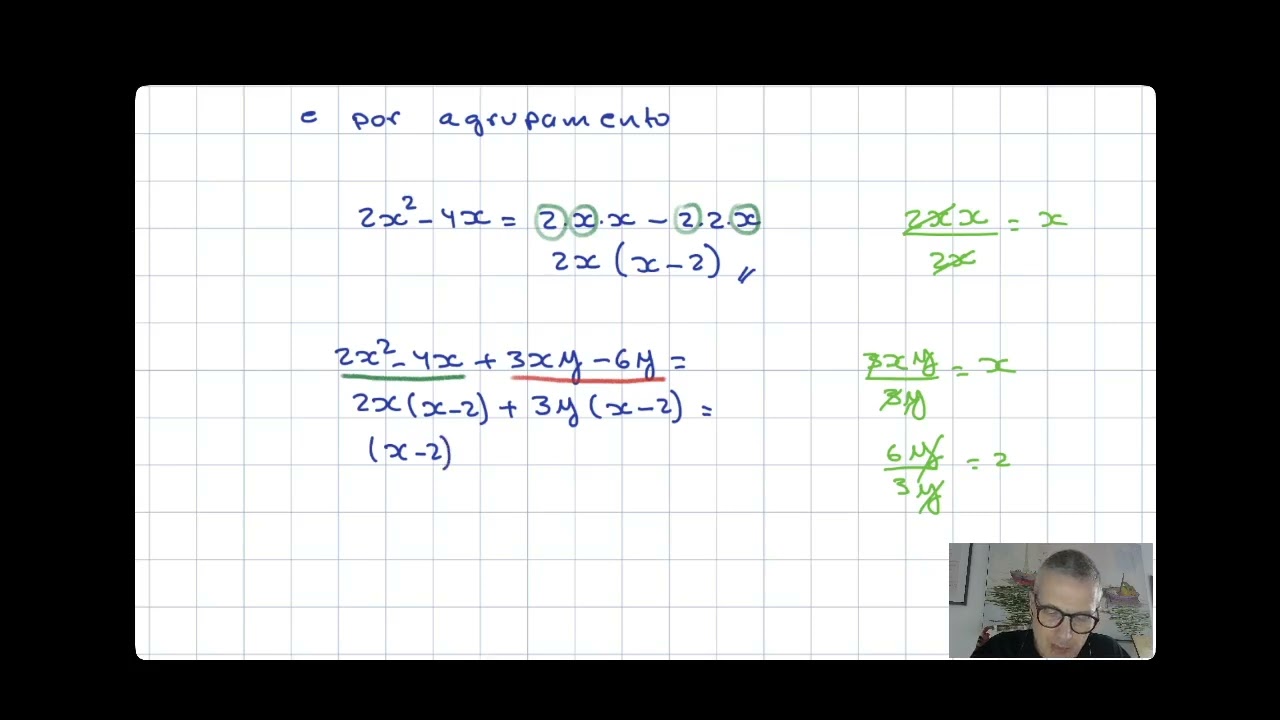 e por agrupamento
2x² - 4x = 2·x·x - 2·2·x
2x (x - 2) //
2xx / 2x = x
2x² - 4x + 3xy - 6y =
2x(x-2) + 3y(x-2) =
(x-2)
3xy / 3y = x
6y / 3y = 2